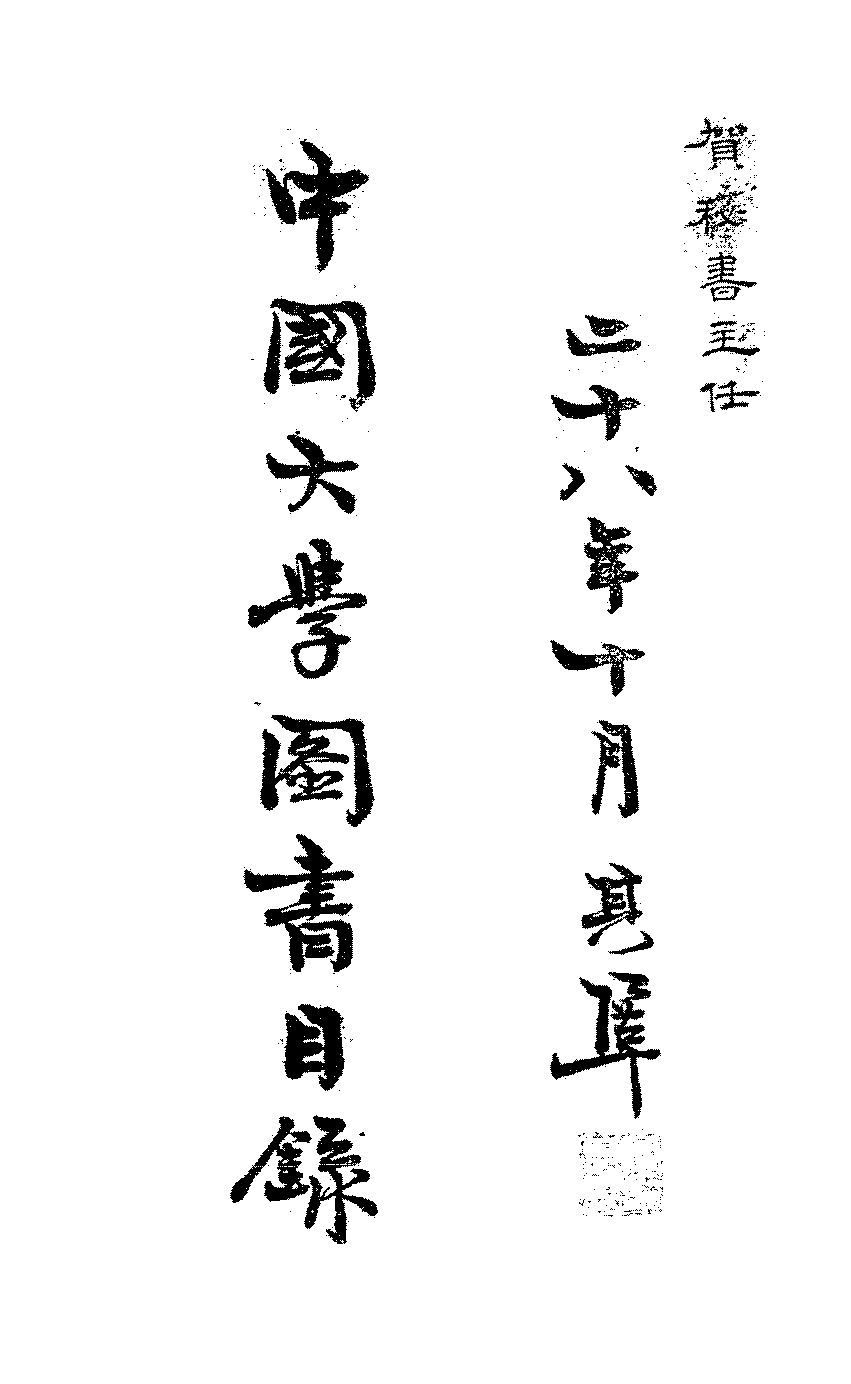 賀秘書主任
二十八年十月其鞏
中國大學圖書目錄